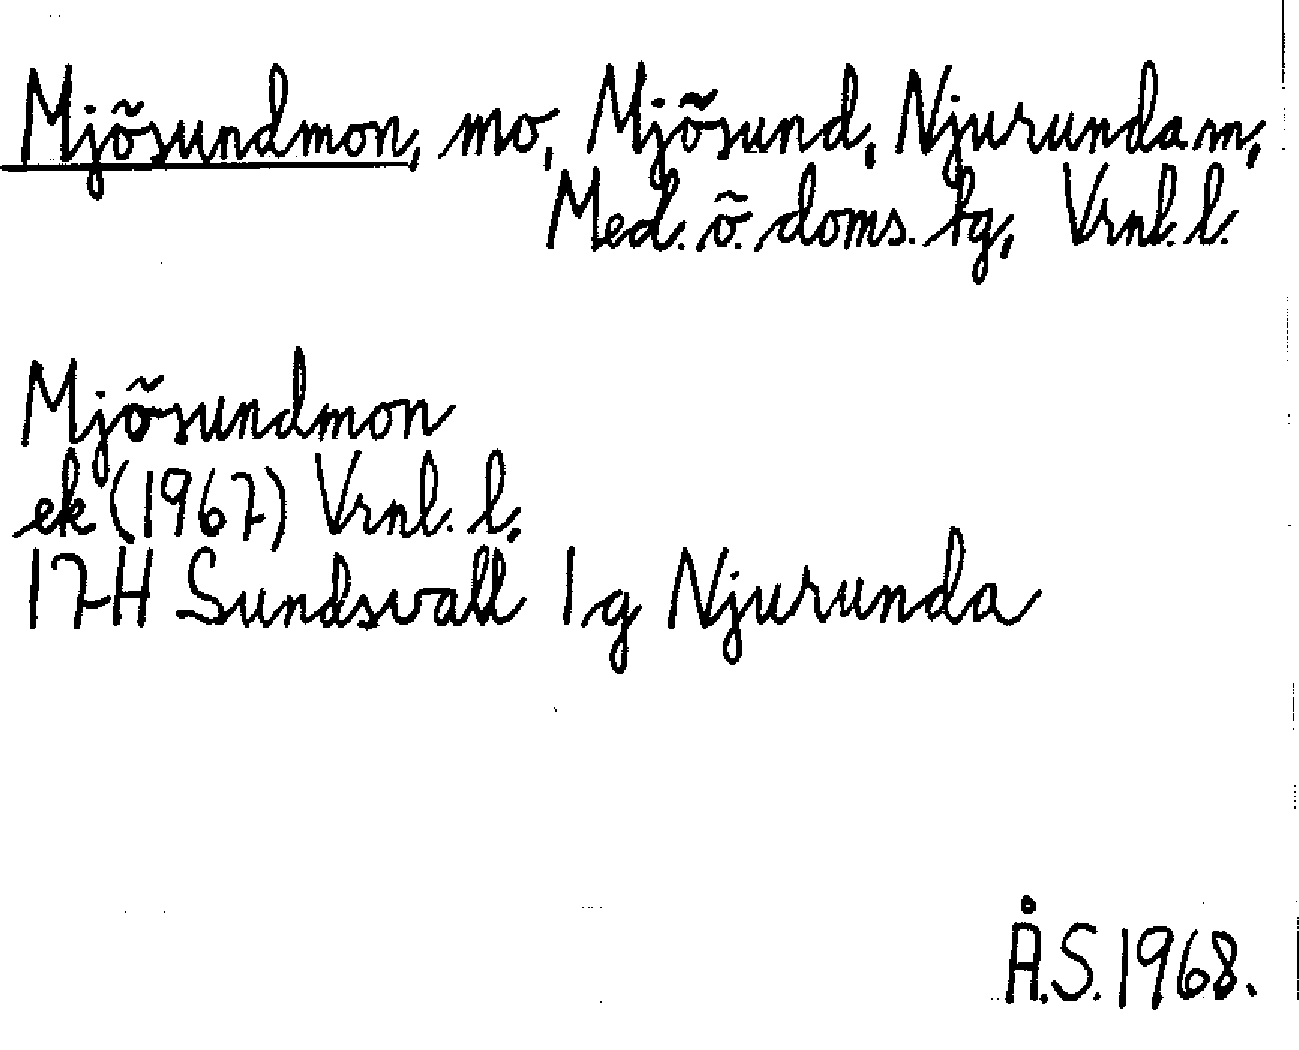 Mjösundmon, mo, Mjösund, Njurunda sn,
Med. ö. doms. tg, Vrnl. l.
Mjösundmon
ek (1967) Vrnl. l.
17H Sundsvall 1 g Njurunda
Å.S. 1968.